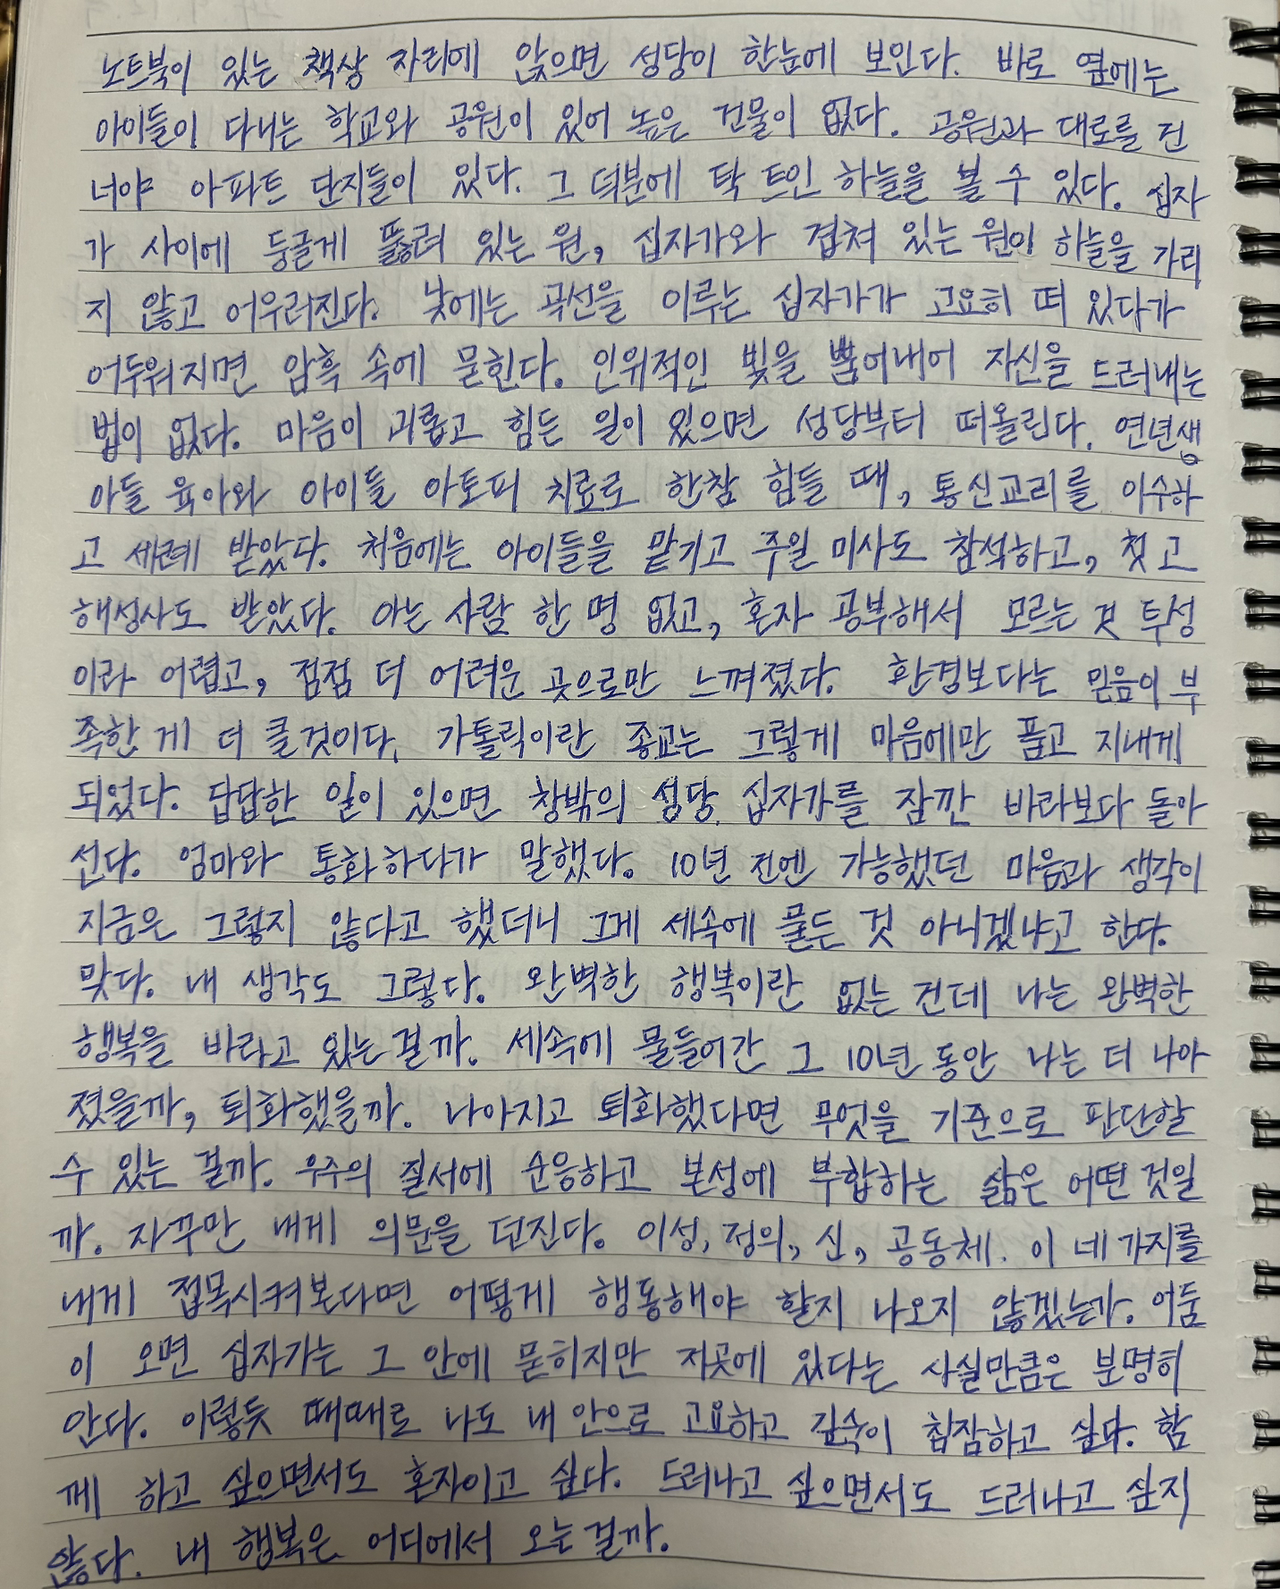 노트북이 있는 책상 자리에 앉으면 성당이 한눈에 보인다. 바로 옆에는
아이들이 다니는 학교와 공원이 있어 높은 건물이 없다. 공원과 대로를 건
너야 아파트 단지들이 있다. 그 덕분에 탁 트인 하늘을 볼 수 있다. 십자
가 사이에 둥글게 뚫려 있는 원, 십자가와 겹쳐 있는 원이 하늘을 가리
지 않고 어우러진다. 낮에는 곡선을 이루는 십자가가 고요히 떠 있다가
어두워지면 암흑 속에 묻힌다. 인위적인 빛을 뿜어내어 자신을 드러내는
법이 없다. 마음이 괴롭고 힘든 일이 있으면 성당부터 떠올린다. 연년생
아들 육아와 아이들 아토피 치료로 한참 힘들 때, 통신교리를 이수하
고 세례 받았다. 처음에는 아이들을 맡기고 주일 미사도 참석하고, 첫 고
해성사도 받았다. 아는 사람 한 명 없고, 혼자 공부해서 모르는 것 투성
이라 어렵고, 점점 더 어려운 곳으로만 느껴졌다. 환경보다는 믿음이 부
족한 게 더 클것이다. 가톨릭이란 종교는 그렇게 마음에만 품고 지내게
되었다. 답답한 일이 있으면 창밖의 성당 십자가를 잠깐 바라보다 돌아
선다. 엄마와 통화하다가 말했다. 10년 전엔 가능했던 마음과 생각이
지금은 그렇지 않다고 했더니 그게 세속에 물든 것 아니겠냐고 한다.
맞다. 내 생각도 그렇다. 완벽한 행복이란 없는 건데 나는 완벽한
행복을 바라고 있는 걸까. 세속에 물들어간 그 10년 동안 나는 더 나아
졌을까, 퇴화했을까. 나아지고 퇴화했다면 무엇을 기준으로 판단할
수 있는 걸까. 우주의 질서에 순응하고 본성에 부합하는 삶은 어떤 것일
까. 자꾸만 내게 의문을 던진다. 이성, 정의, 신, 공동체. 이 네 가지를
내게 접목시켜본다면 어떻게 행동해야 할지 나오지 않겠는가. 어둠
이 오면 십자가는 그 안에 묻히지만 저곳에 있다는 사실만큼은 분명히
안다. 이렇듯 때때로 나도 내 안으로 고요하고 깊숙이 침잠하고 싶다. 함
께 하고 싶으면서도 혼자이고 싶다. 드러나고 싶으면서도 드러나고 싶지
않다. 내 행복은 어디에서 오는걸까.